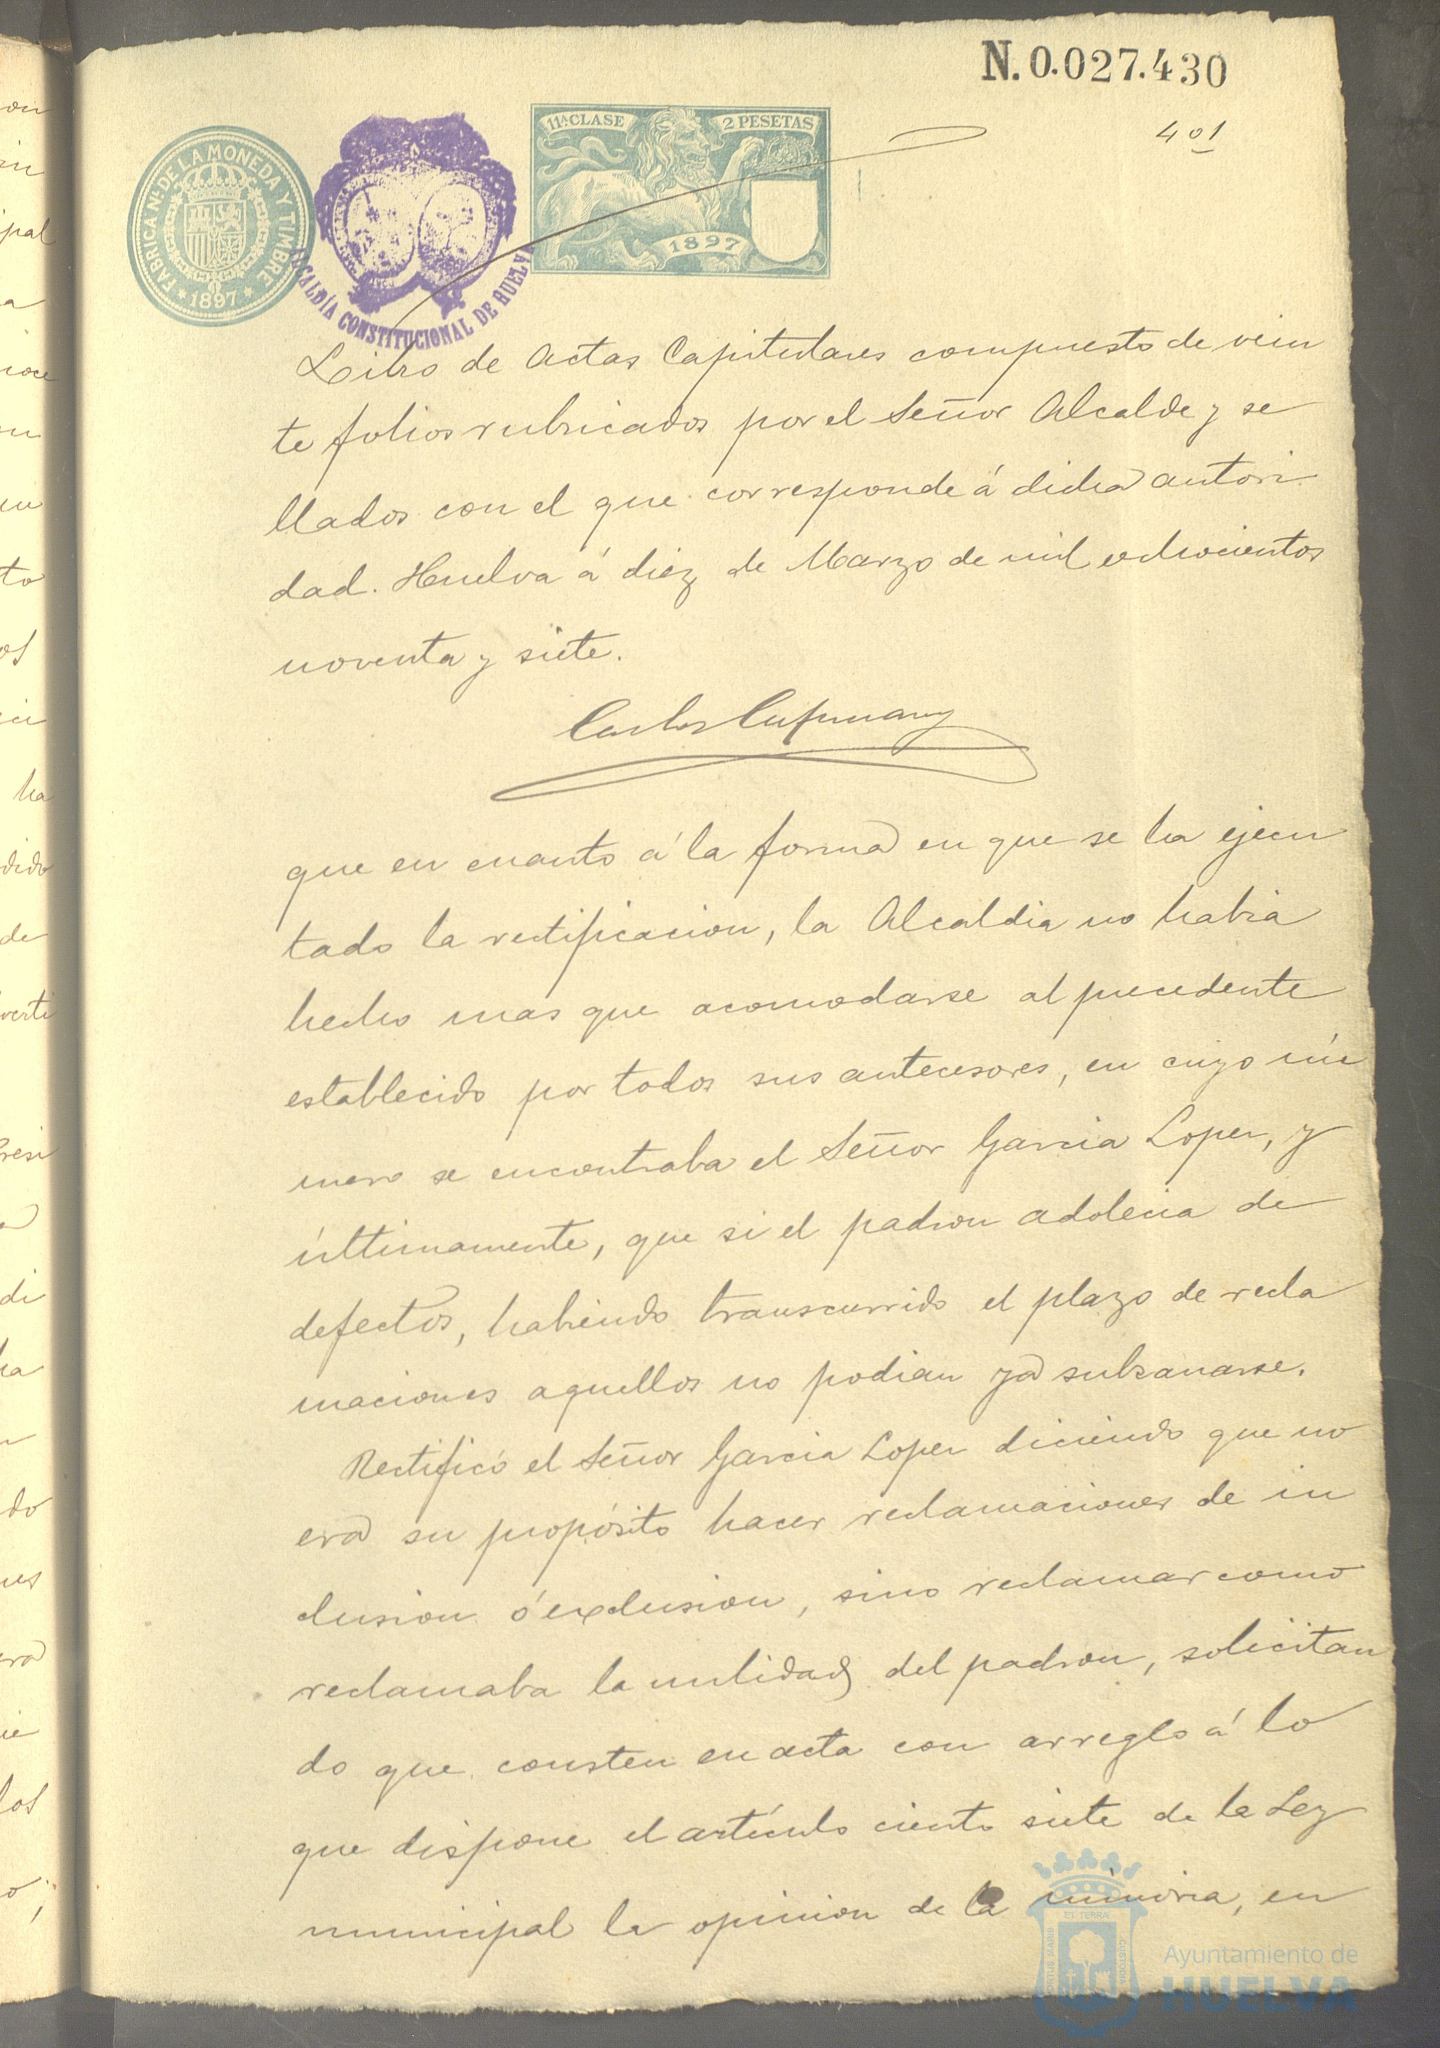 N. 0.027.430
401
11ª CLASE
2 PESETAS
1897
FABRICA Nal. DE LA MONEDA Y TIMBRE
1897
ALCALDÍA CONSTITUCIONAL DE HUELVA
Libro de Actas Capitulares compuesto de vein
te folios rubricados por el Señor Alcalde y se
llados con el que corresponde á dicha autori
dad. Huelva á diez de Marzo de mil ochocientos
noventa y siete.
Carlos
que en cuanto á la forma en que se ha ejecu
tado la rectificacion, la Alcaldia no habia
hecho mas que acomodarse al precedente
establecido por todos sus antecesores, en cuyo nú
mero se encontraba el Señor Garcia Lopez, y
últimamente, que si el padron adolecia de
defectos, habiendo transcurrido el plazo de recla
maciones aquellos no podian ya subsanarse.
Rectificó el Señor Garcia Lopez diciendo que no
era su propósito hacer reclamaciones de in
clusion ó exclusion, sino reclamar como
reclamaba la nulidad del padron, solicitan
do que consten en acta con arreglo á lo
que dispone el artículo ciento siete de la Ley
municipal la opinion de la minoria, en
Ayuntamiento de
HUELVA